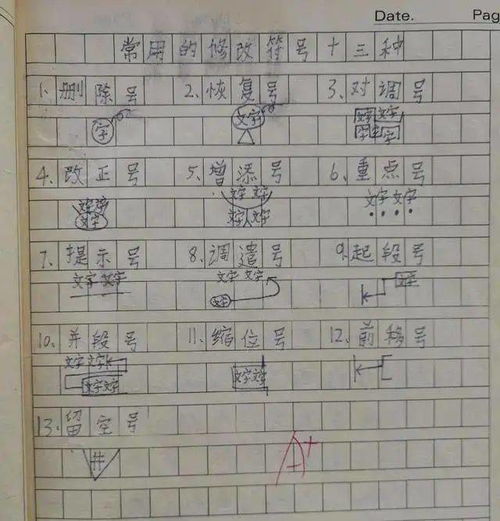 Date. Pag
常用的修改符号十三种
1. 删除号 2. 恢复号 3. 对调号
字 文字 文字 文字
4. 改正号 5. 增添号 6. 重点号
文字 文字 文字 文字
文字 文字 文字
7. 提示号 8. 调遣号 9. 起段号
文字 文字 文字 文字 文字
文字
10. 并段号 11. 缩位号 12. 前移号
文字 文字 文字 文字
文字文字
13. 留空号
井
A+